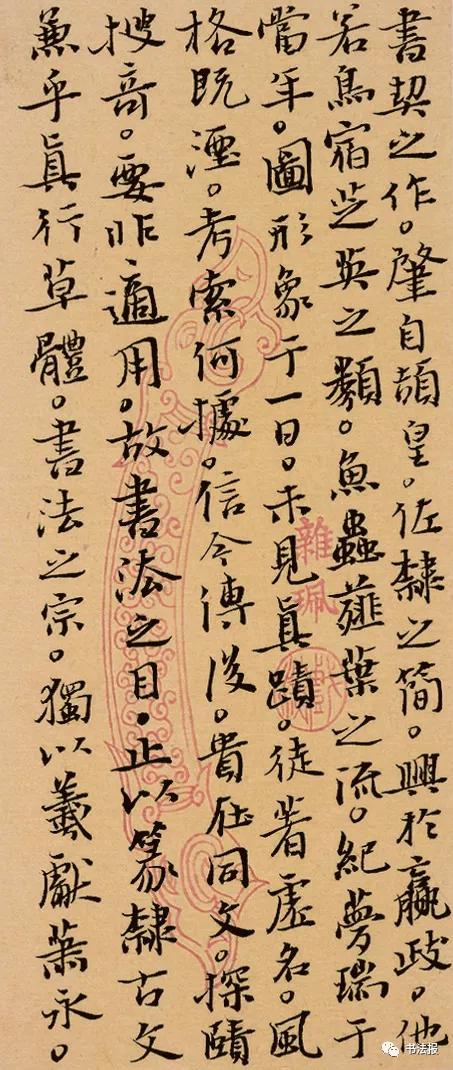 書契之作。肇自頡皇。佐隸之簡。興於嬴政。他
若鳥宿芝英之類。魚蟲薤葉之流。紀夢瑞于
當年。圖形象于一日。未見眞蹟。徒著虛名。風
格既湮。考索何據。信今傳後。貴在同文。探賾
搜奇。要非適用。故書法之目。止以篆隸古文
兼乎眞行草體。書法之宗。獨以羲獻蕭永。
雜珮
书法报